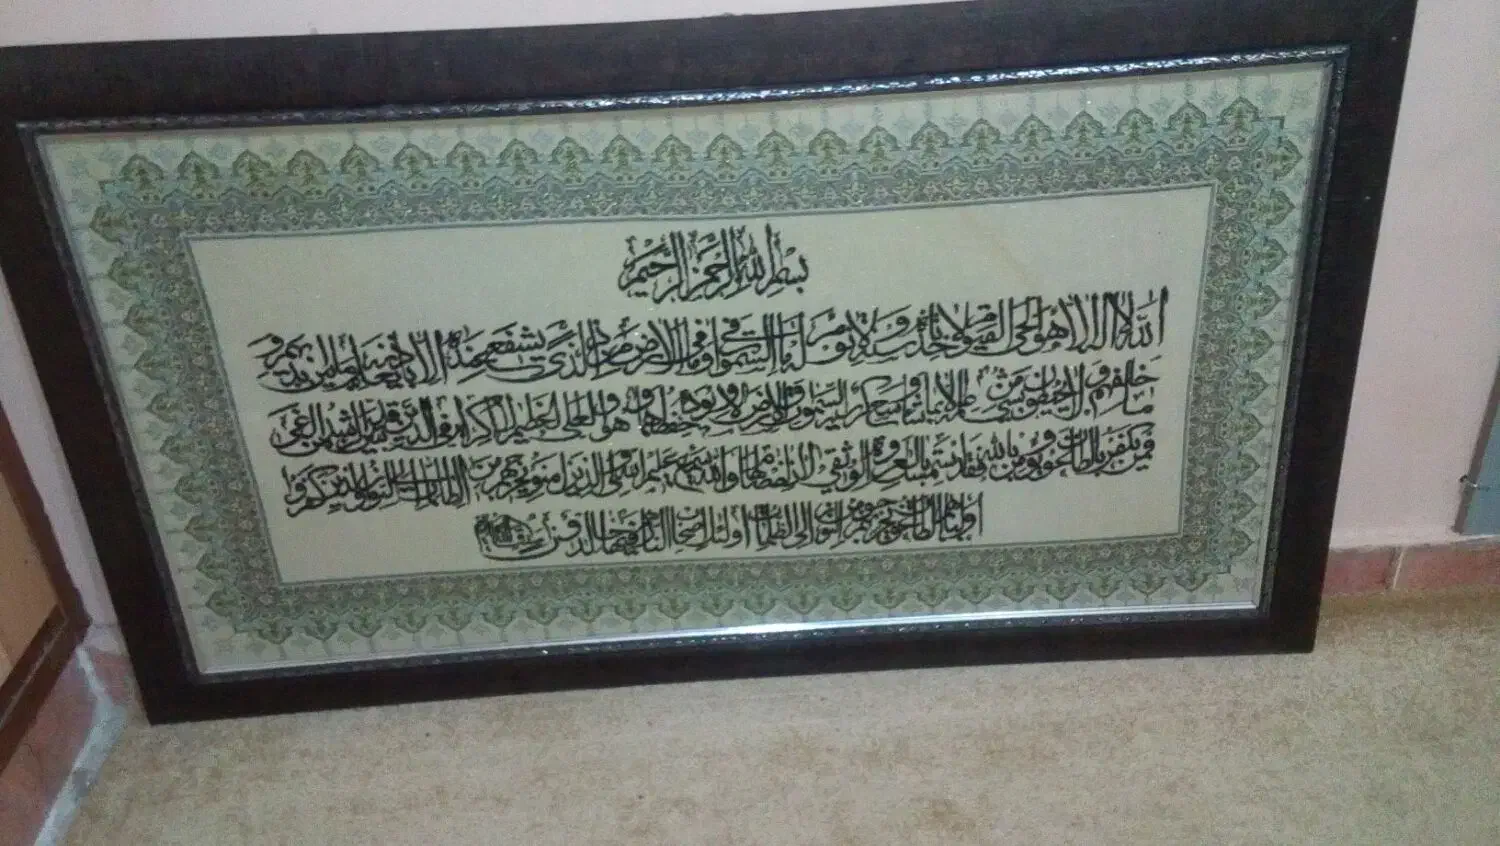 بسم الله الرحمن الرحيم
الله لا اله الا هو الحي القيوم لا تأخذه سنة ولا نوم له ما في السموات وما في الارض من ذا الذي يشفع عنده الا باذنه يعلم ما بين ايديهم و
ما خلفهم ولا يحيطون بشيء من علمه الا بما شاء وسع كرسيه السموات والارض ولا يؤده حفظهما وهو العلي العظيم لا اكراه في الدين قد تبين الرشد من الغي
فمن يكفر بالطاغوت ويؤمن بالله فقد استمسك بالعروة الوثقى لا انفصام لها والله سميع عليم الله ولي الذين امنوا يخرجهم من الظلمات الى النور والذين كفروا
اولياؤهم الطاغوت يخرجونهم من النور الى الظلمات اولئك اصحاب النار هم فيها خالدون